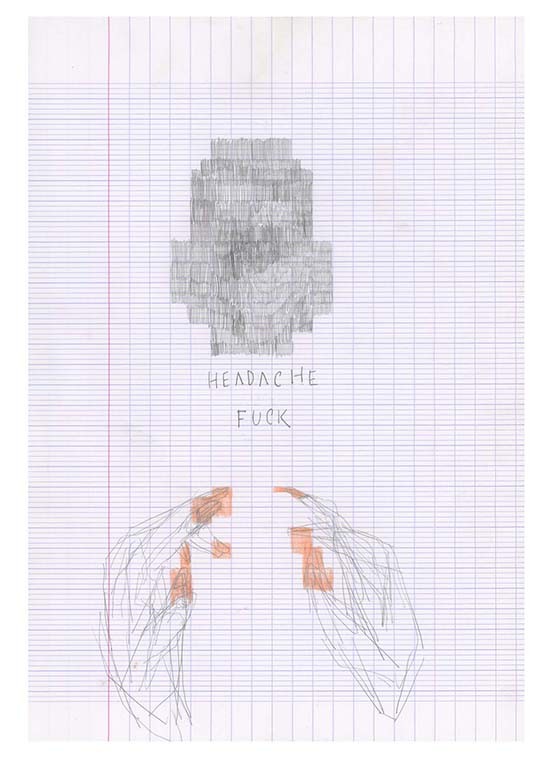 HEADACHE
FUCK